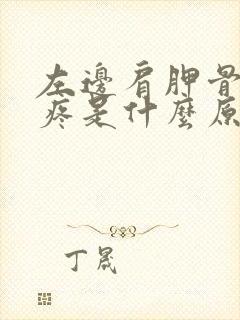 左邊肩胛骨
疼是什麼原
丁晟